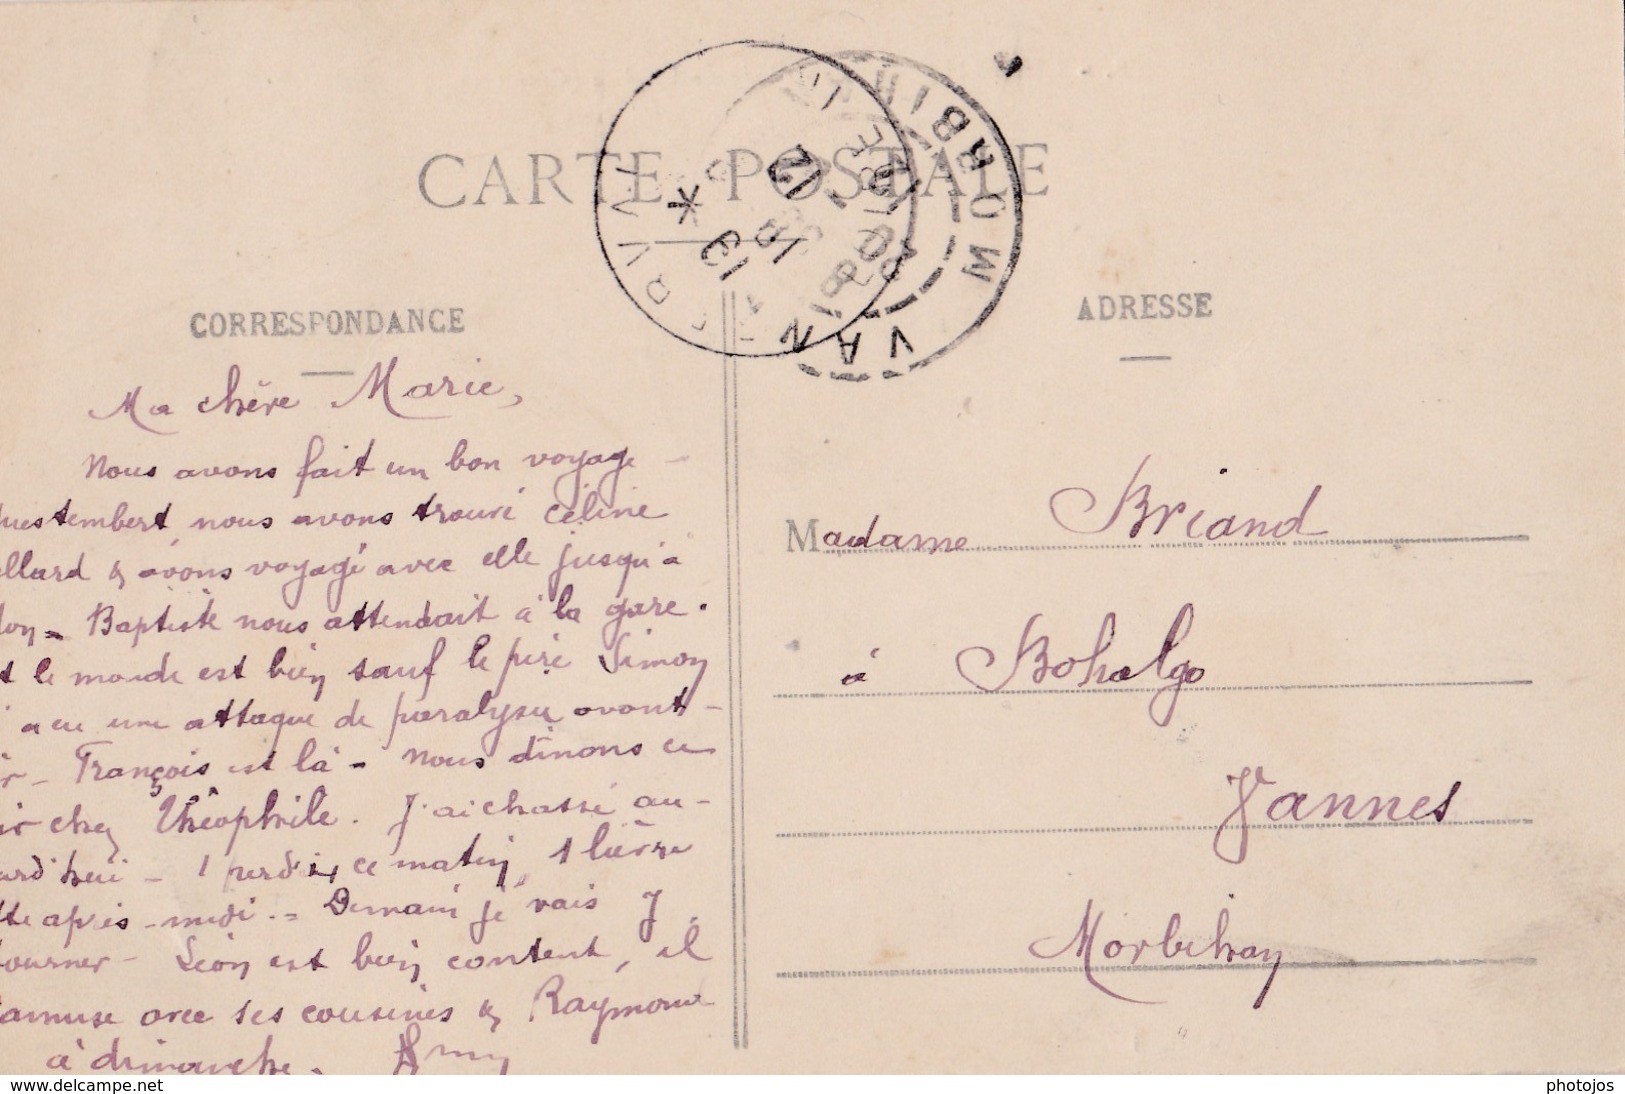 CARTE POSTALE
MORBIHAN
VAN
13
CORRESPONDANCE
ADRESSE
Ma chère Marie,
Nous avons fait un bon voyage -
uestembert nous avons trouvé céline
llard & avons voyagé avec elle jusqu'à
don - Baptiste nous attendait à la gare.
t le monde est bien sauf le père Simon
a eu une attaque de paralysie avant-
r - François est là - nous dînons ce
ir chez Théophile. J'ai chassé au-
urd'hui - 1 perdrix ce matin, 1 lièvre
tte après-midi. - Demain je vais y
tourner - Léon est bien content, il
amuse avec ses cousines & Raymond
à dimanche.
Madame Briand
à Bohalgo
Vannes
Morbihan
www.delcampe.net
photojos